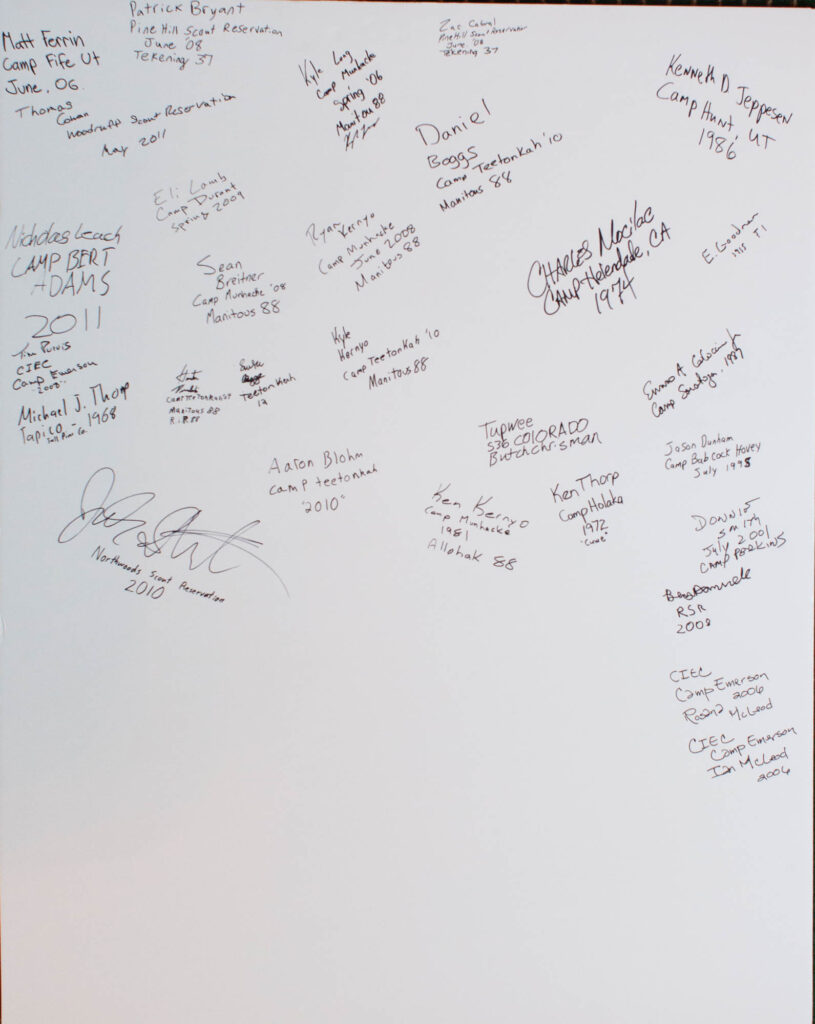 Matt Ferrin
Camp Fife Ut
June. 06
Patrick Bryant
Pine Hill Scout Reservation
June '08
Tekening 37
Thomas
Cowan
Woodruff Scout Reservation
May 2011
Kyle Long
Camp Munhacke
Spring '06
Manitous 88
Zac Cabral
Pine Hill Scout Reservation
June '08
Tekening 37
Daniel
Boggs
Camp Teetonkah '10
Manitous 88
Kenneth D Jeppesen
Camp Hunt, UT
1986
Eli Lamb
Camp Durant
Spring 2009
Nicholas Leach
CAMP BERT
ADAMS
2011
Sean
Breitner
Camp Munhacke '08
Manitous 88
Ryan
Kernyo
Camp Munhacke
June 2008
Manitous 88
CHARLES Mocilac
CAMP Helendale, CA
1974
E. Goodman
1915
Tim Purvis
CIEC
Camp Emerson
2008
Michael J. Thorp
Tapico - 1968
Manitous 88
Teetonkah
Kyle
Kernyo
Camp Teetonkah '10
Manitous 88
Camp 1987
Tupwee
536 COLORADO
Butch Chrisman
Jason Dunham
Camp Babcock Hovey
July 1998
Aaron Blohm
camp teetonkah
"2010"
Ken Kernyo
Camp Munhacke
1981
Allohak 88
Ken Thorp
Camp Holaka
1972
DONNIE
Smith
July 2001
CAMP PERKINS
Northwoods Scout Reservation
2010
RSR
2008
CIEC
Camp Emerson
2006
Rosana McLeod
CIEC
Camp Emerson
Ian McLeod
2006